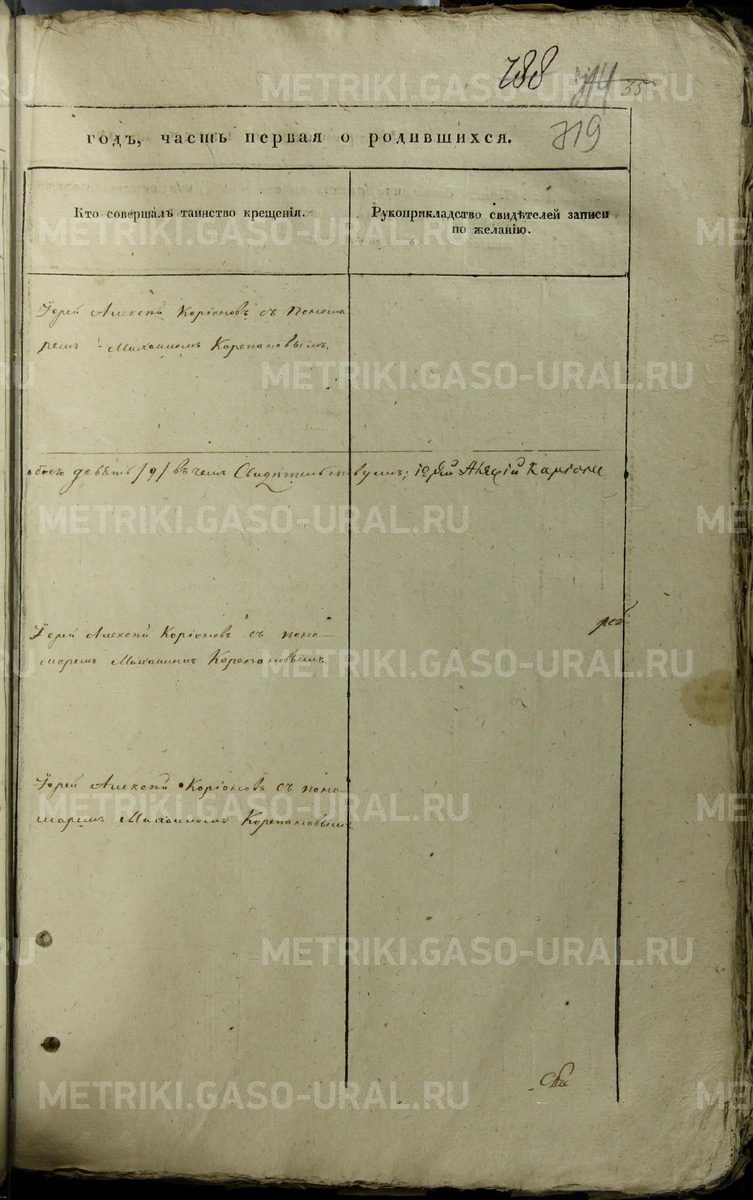 288
35
719
годъ, часть первая о родившихся.
Кто совершалъ таинство крещенія.
Рукоприкладство свидѣтелей записи
по желанію.
Іерей Алексій Каріоновъ съ понома
ремъ Михаиломъ Корепановымъ.
обоего девять /9/ въ чемъ Свидѣтельствуемъ; іерей Алексій Каріоно
Іерей Алексій Каріоновъ съ поно
маремъ Михаиломъ Корепановымъ.
Іерей Алексій Каріоновъ съ поно
маремъ Михаиломъ Корепановымъ
METRIKI.GASO-URAL.RU